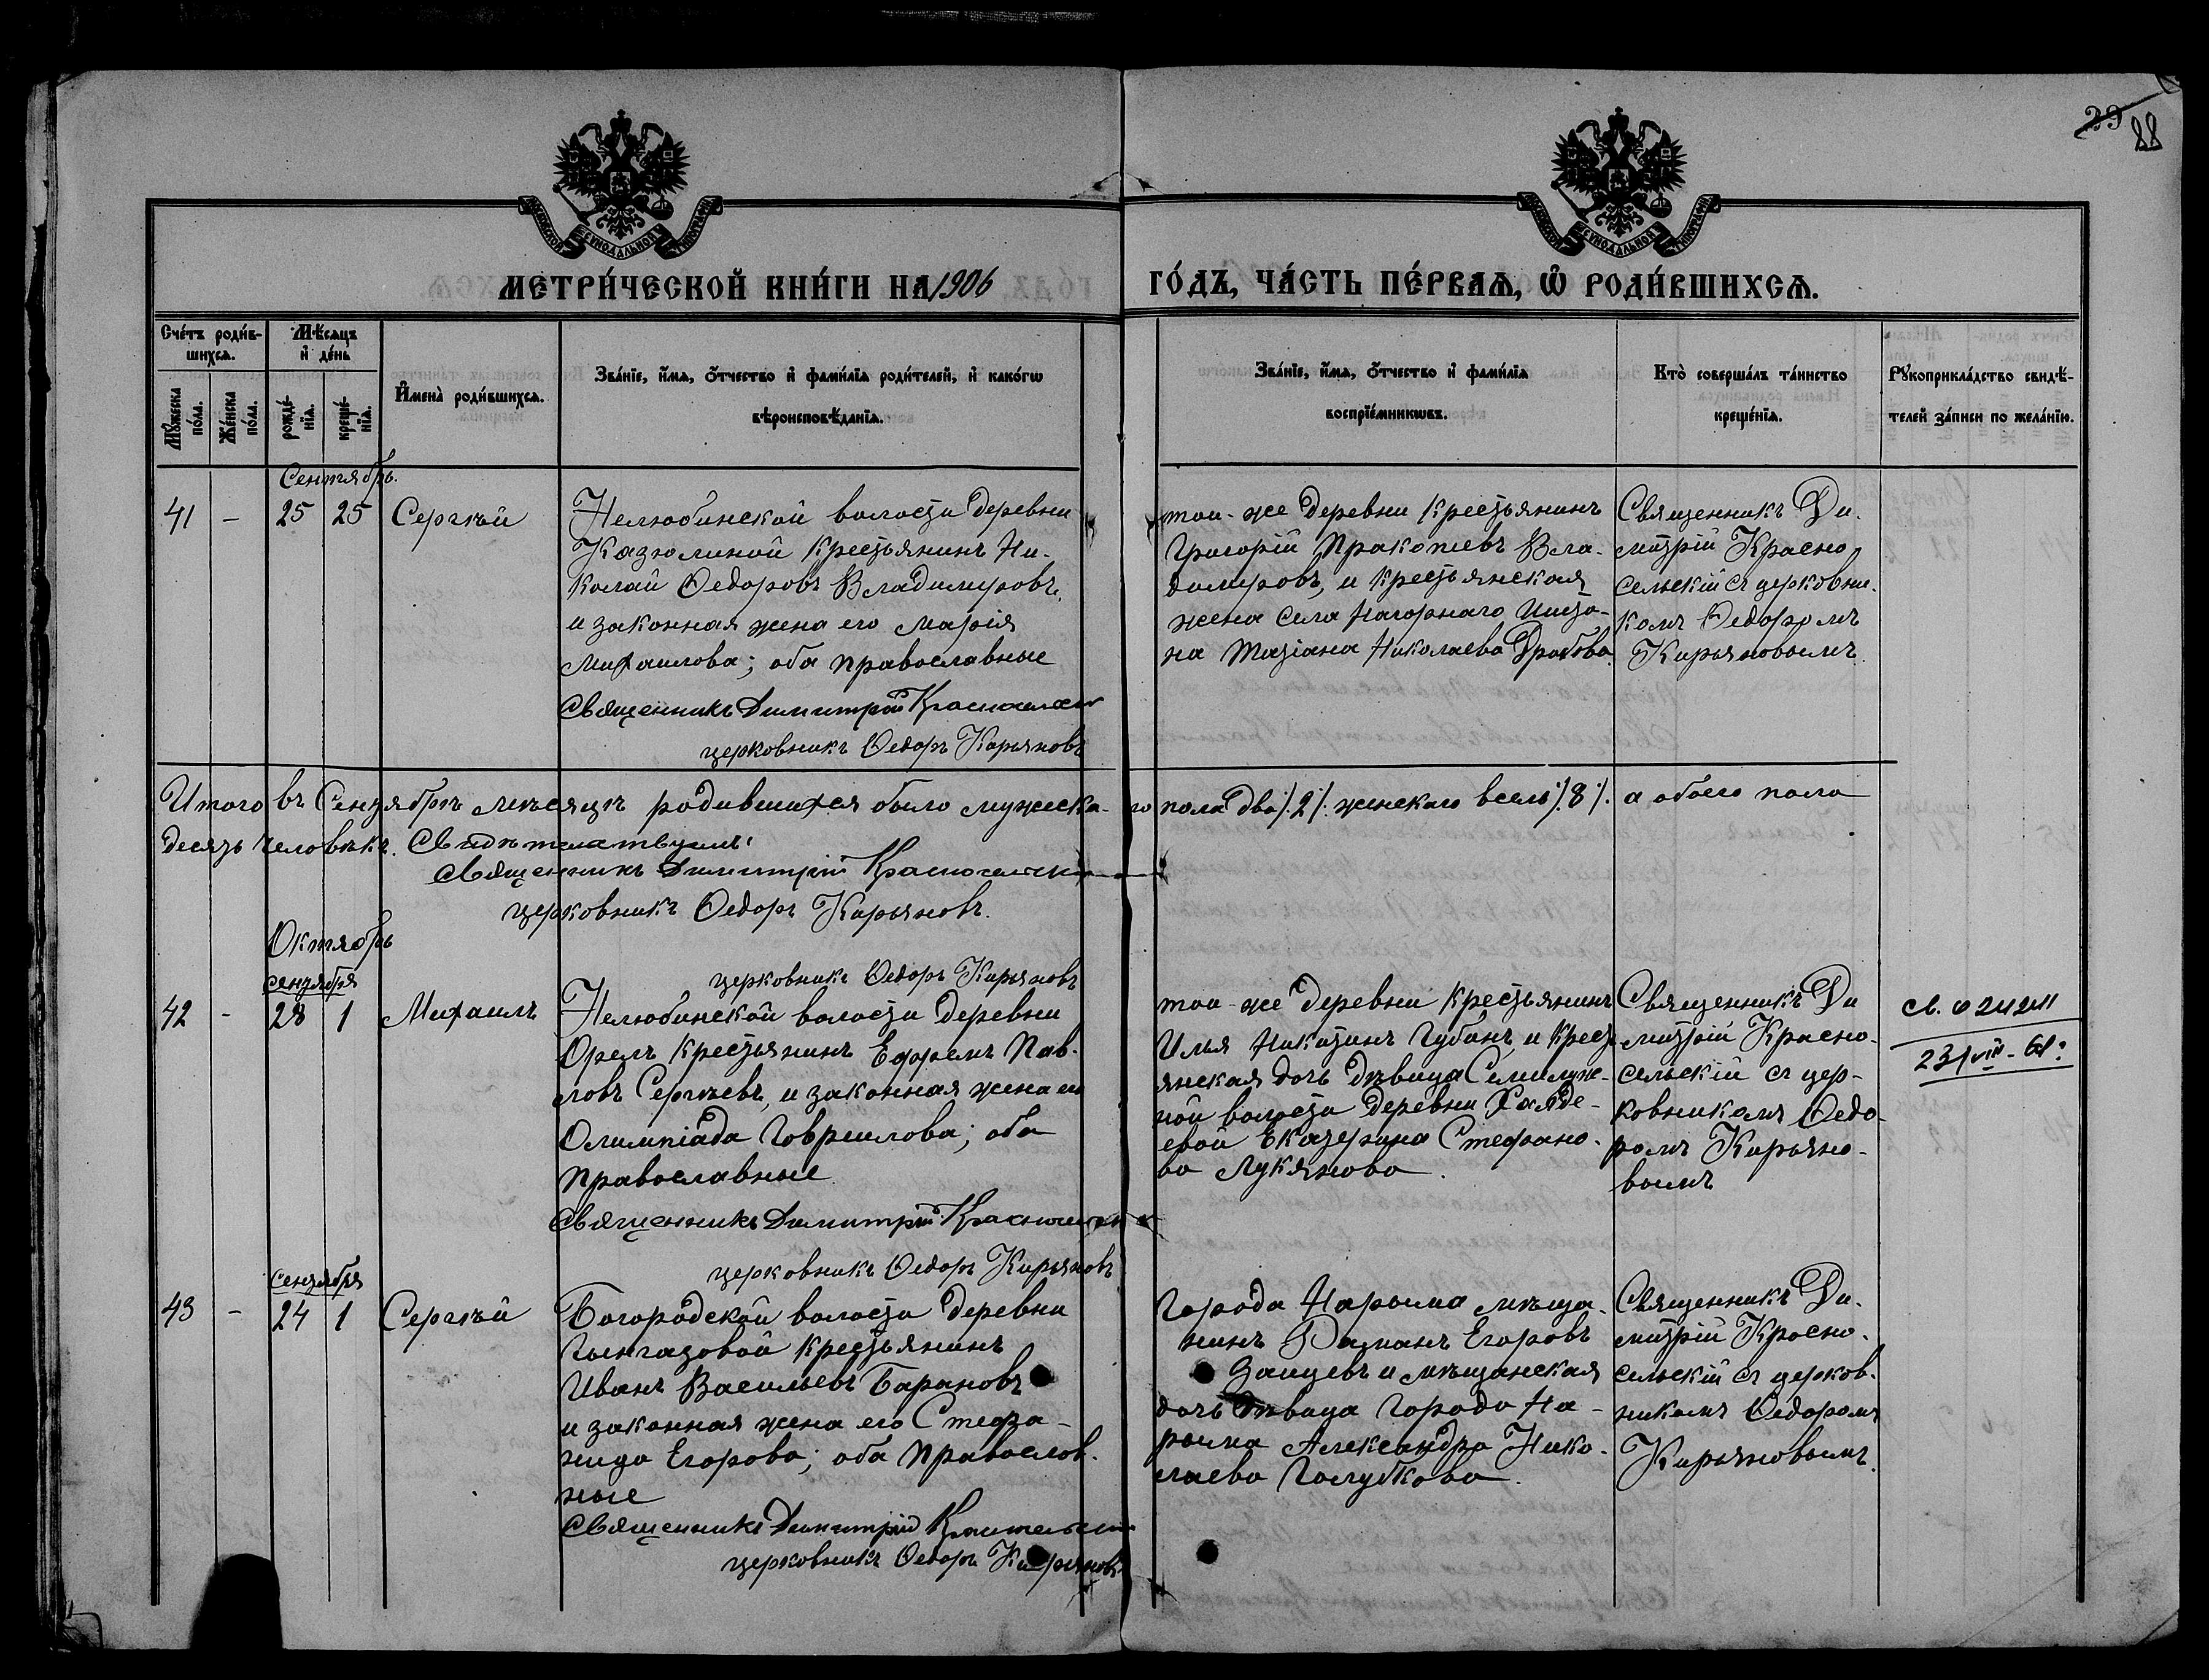 29 28
МЕТРИ́ЧЕСКОЙ КНИ́ГИ НА 1906 ГО́ДЪ, ЧА́СТЬ ПЕ́РВАѦ, Ѡ҆ РОДИ́ВШИХСѦ.
Сче́тъ роди́в-
шихсѧ.
Мꙋ́жеска по́ла.
Же́нска по́ла.
Мѣ́сѧцъ
и҆ де́нь
рожде́-
нїѧ.
креще́-
нїѧ.
И҆мена̀ роди́вшихсѧ.
Зва́нїе, и҆́мѧ, ѻ҆́тчество и҆ фами́лїѧ роди́телей, и҆ како́гѡ
вѣроисповѣ́данїѧ.
Зва́нїе, и҆́мѧ, ѻ҆́тчество и҆ фами́лїѧ
воспрїе́мникѡвъ.
Кто̀ соверша́лъ та́инство
креще́нїѧ.
Рꙋкоприкла́дство свидѣ́-
телей за́писи по жела́нїю.
Сентябрь.
41 - 25 25 Сергѣй
Нелюбинской волости деревни
Казюлиной крестьянинъ Ни-
колай Ѳедоровъ Владимировъ,
и законная жена его Марія
Михаилова; оба православные
Священникъ Димитрій Красносельскій
церковникъ Ѳедоръ Кирьяновъ
той-же деревни крестьянинъ
Григорій Пракопьевъ Вла-
димировъ, и крестьянская
жена села Нагорнаго Иштана
на Татіана Николаева
Священникъ Ди-
митрій Красно
сельскій съ церковни-
комъ Ѳедоромъ
Кирьяновымъ.
Итого въ Сентябрѣ мѣсяцѣ родившихся было мужеска-го пола два ./.2./. женскаго весмь ./.8./. а обоего пола
десять человѣкъ. Свидѣтельствуемъ:
Священникъ Димитрій Красносельскій
церковникъ Ѳедоръ Кирьяновъ.
Октябрь
церковникъ Ѳедоръ Кирьяновъ
сентября
42 - 28 1 Михаилъ
Нелюбинской волости деревни
Орелъ крестьянинъ Ефремъ Пав-
ловъ Сергѣевъ, и законная жена его
Олимпіада Гавриилова; оба
православные
Священникъ Димитрій Красносельскій
церковникъ Ѳедоръ Кирьяновъ
той-же деревни крестьянинъ
Илья Никитинъ Губинъ, и кресть-
янская дочь дѣвица Семилуж-
ной волости деревни
евой Екатерина Стефано-
ва Лукянова.
Священникъ Ди
митрій Красно-
сельскій съ цер-
ковникомъ Ѳедо-
ромъ Кирьяно-
вымъ
23/VIII-61г
сентября
43 - 24 1 Сергѣй
Богородской волости деревни
Тынгазовой крестьянинъ
Иванъ Васильевъ Барановъ
и законная жена его Стефа-
нида Егорова; оба православ-
ные
Священникъ Димитрій Красносельскій
церковникъ Ѳедоръ Кирьяновъ
города Нарыма мѣща-
нинъ Раманъ Егоровъ
Заицевъ и мѣщанская
дочь дѣвица города На-
рыма Александра Нико-
лаева Голубкова.
Священникъ Ди-
митрій Красно-
сельскій съ церков-
никомъ Ѳедоромъ
Кирьяновымъ.